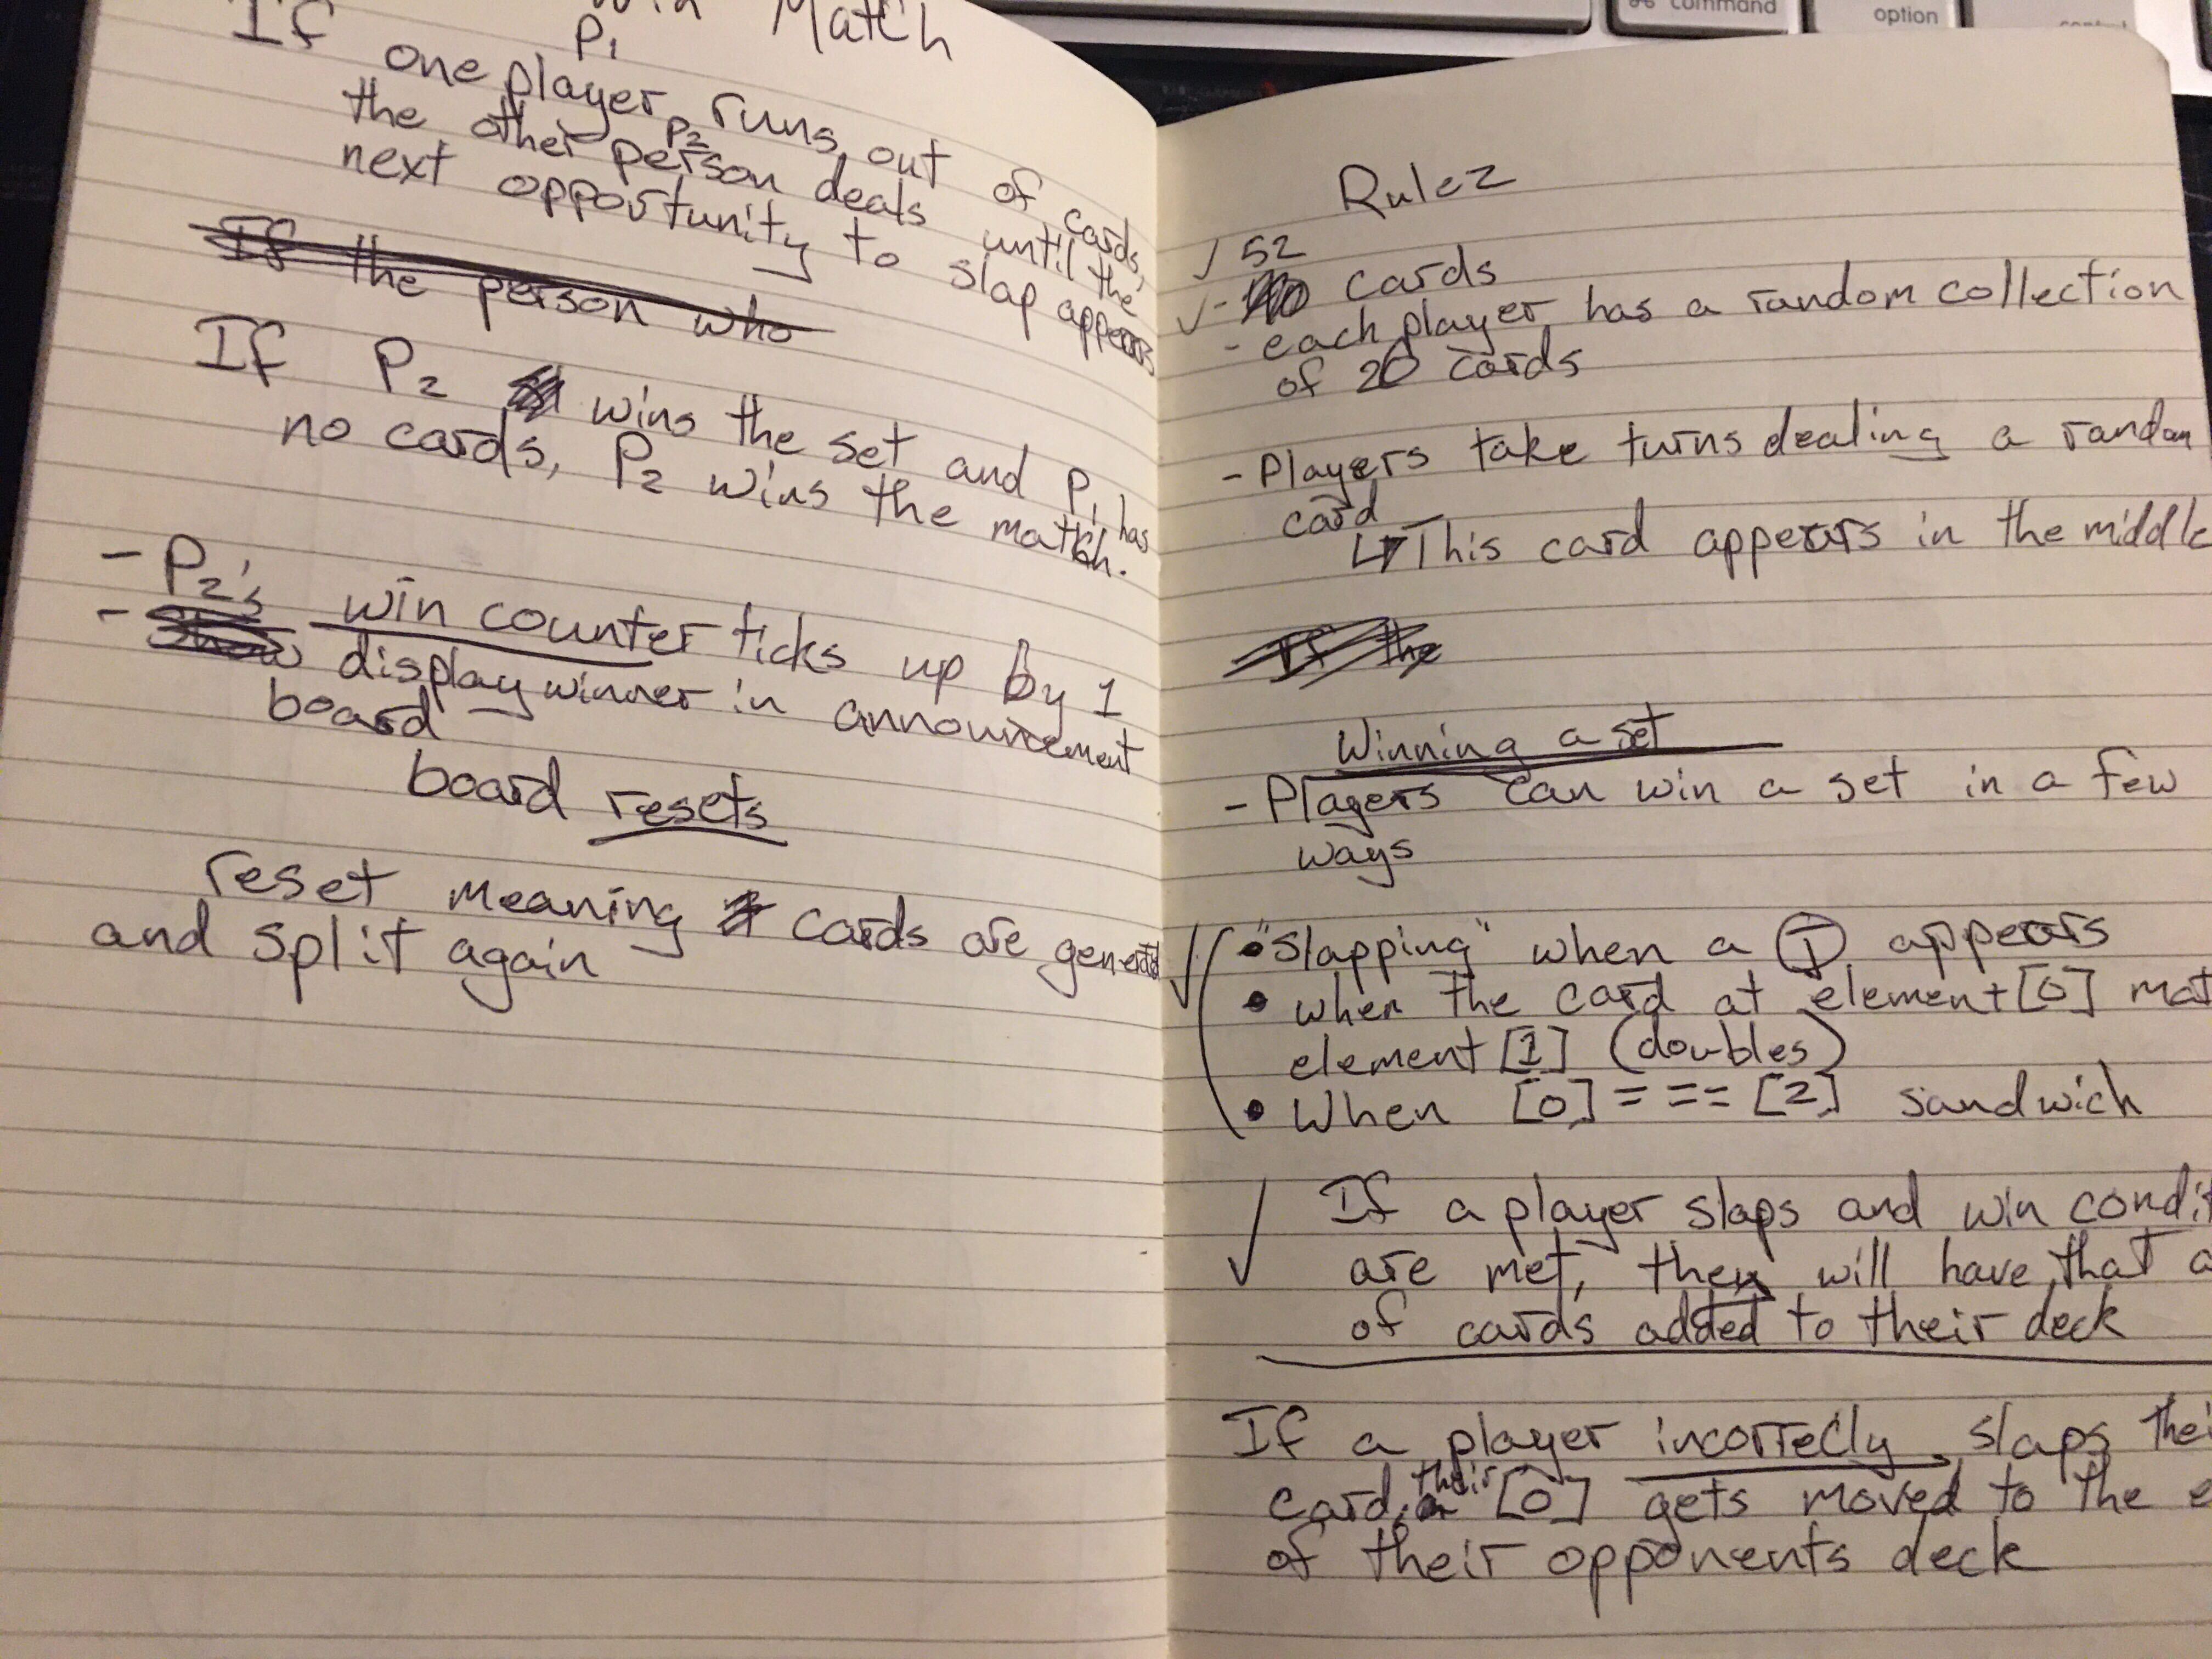 command
option
Win Match
If one player P1 runs out of cards,
the other person P2 deals until the
next opportunity to slap appears
If the person who
If P2 wins the set and P1 has
no cards, P2 wins the match.
- P2's win counter ticks up by 1
- Show display winner in announcement
board
board resets
reset meaning cards are generated
and split again
Rulez
✓ 52
✓ - 40 cards
- each player has a random collection
of 20 cards
- Players take turns dealing a random
card
↳ This card appears in the middle
If the
Winning a set
- Players can win a set in a few
ways
✓ • "slapping" when a J appears
• when the card at element [0] mat
element [1] (doubles)
• When [0] === [2] sandwich
✓ If a player slaps and win condit
are met, they will have that a
of cards added to their deck
If a player incorrectly slaps thei
card, their [0] gets moved to the e
of their opponents deck